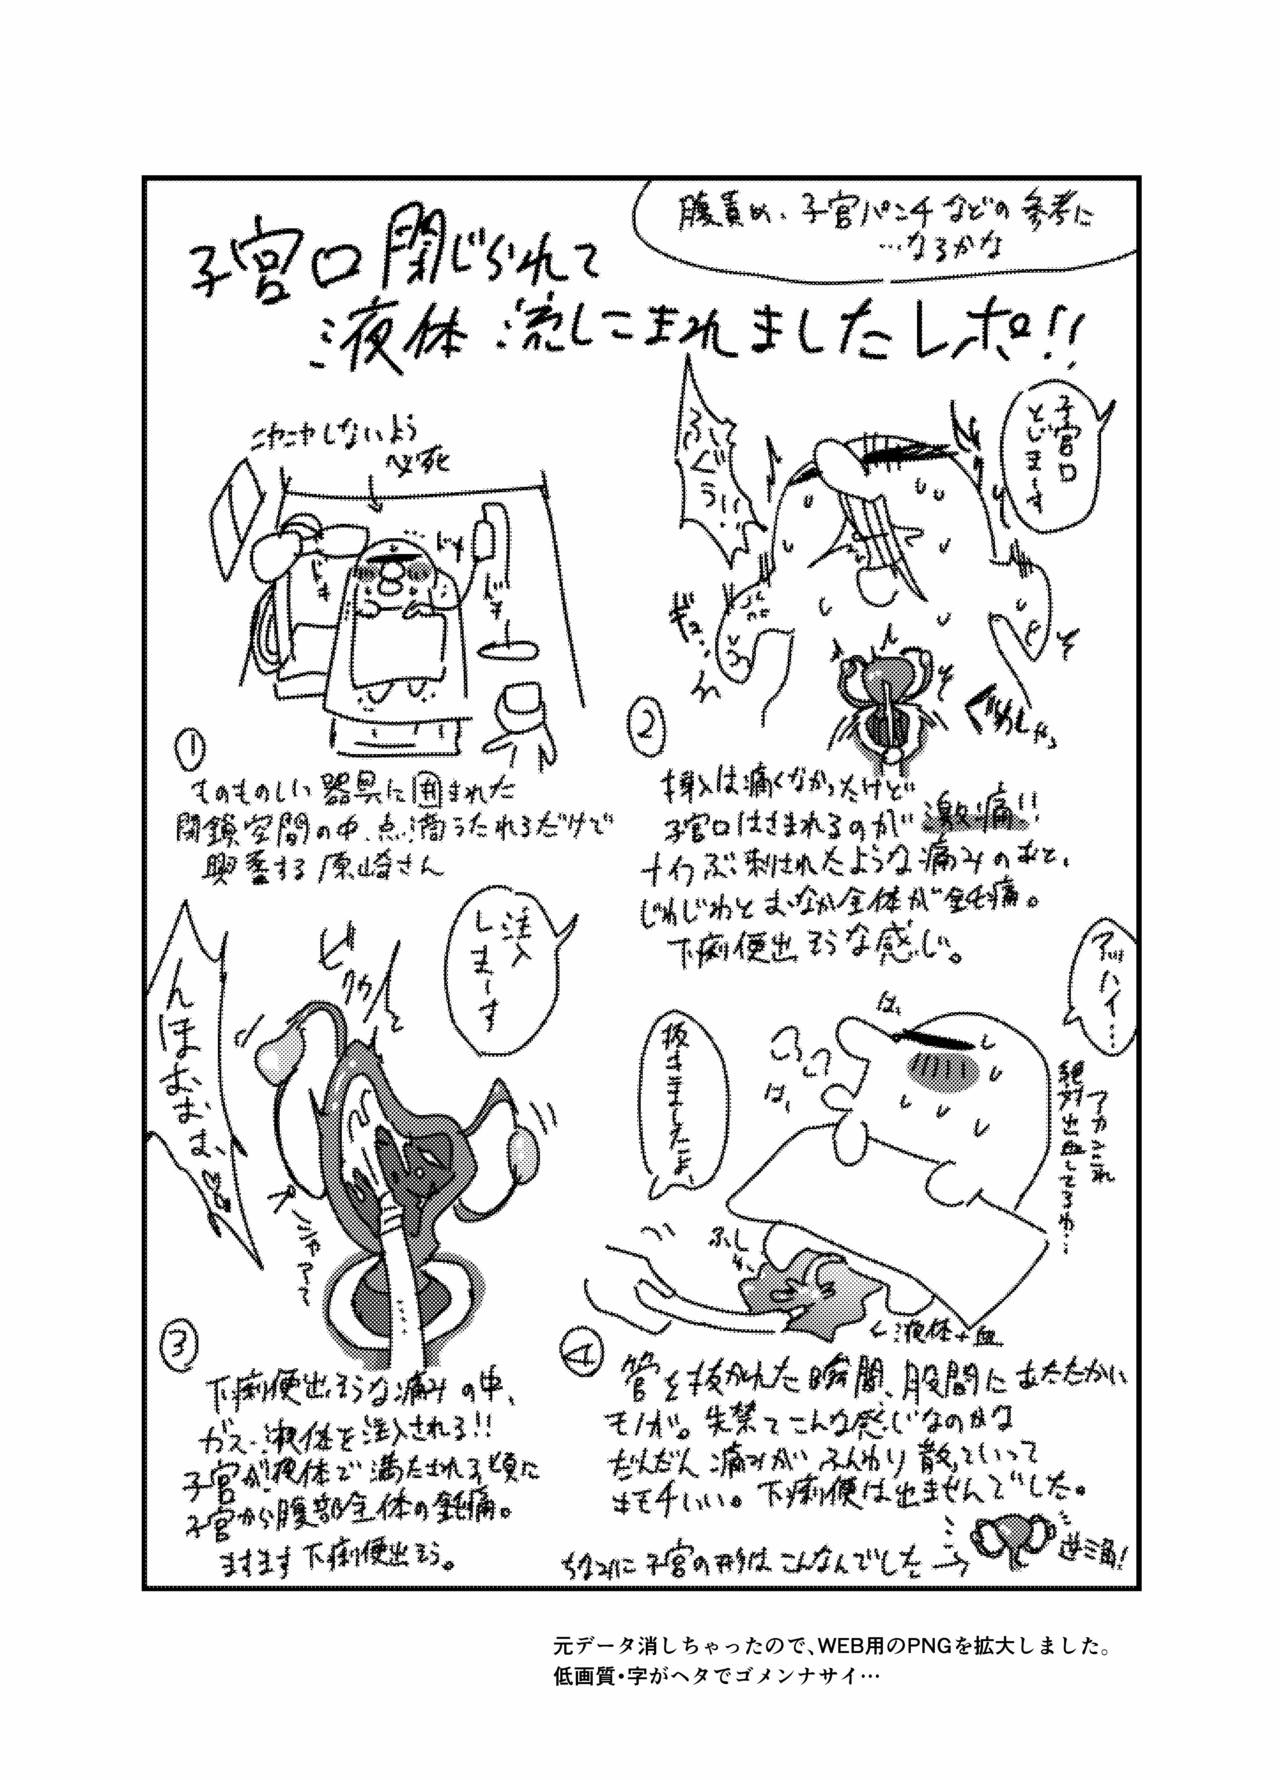 腹責め、子宮パンチなどの参考に
…なるかな
子宮口閉じられて
液体流しこまれましたレポ!!
ニヤニヤしないよう
必死
ドキ
ドキ
ドキ
①
ものものしい器具に囲まれた
閉鎖空間の中、点滴うたれるだけで
興奮する原崎さん
子宮口
とじまーす
ふぐぅぅ!!
ギュ…
ぐわしゃっ
②
挿入は痛くなかったけど
子宮口はさまれるのが激痛!!
ナイフぶっ刺されたような痛みのあと、
じわじわとおなか全体が鈍痛。
下痢便出そうな感じ。
注入
しまーす
んほおおお、
ビクカッと
プシャアア
③
下痢便出そうな痛みの中、
ガス・液体を注入される!!
子宮が液体で満たされる頃に
子宮から腹部全体の鈍痛。
ますます下痢便出そう。
アッハイ…
抜きましたよ、
はっ
はっ
アカンこれ
絶対出血してるわ…
←液体+血
④
管を抜かれた瞬間、股間にあたたかい
モノが。失禁てこんな感じなのかな
だんだん痛みがふんわり散っていって
キモチいい。下痢便は出ませんでした。
ちなみに子宮の形はこんなんでした→
逆三角!
元データ消しちゃったので、WEB用のPNGを拡大しました。
低画質・字がヘタでゴメンナサイ…